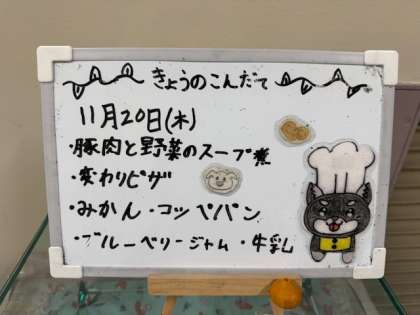 きょうのこんだて
11月20日(木)
・豚肉と野菜のスープ煮
・変わりピザ
・みかん・コッペパン
・ブルーベリージャム・牛乳